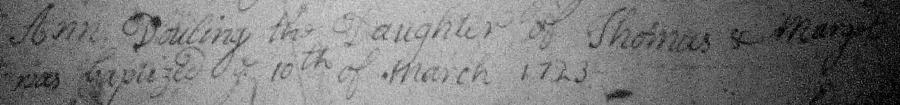 Ann Douling the Daughter of Thomas & Margt
was baptized ye 10th of March 1723